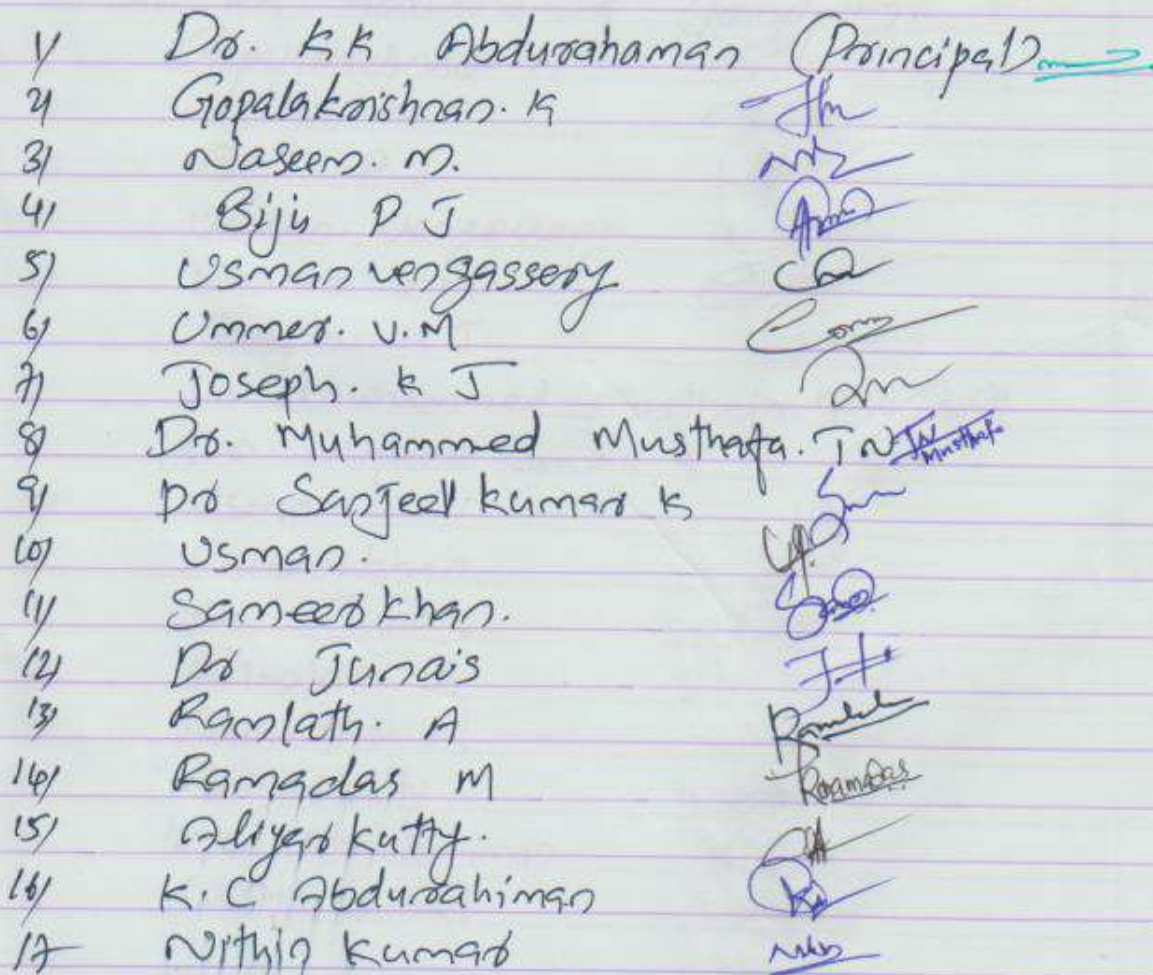 1) Dr. KK Abdurahaman (Principal)
2) Gopalakrishnan. K
3) Naseem. M.
4) Biju P J
5) Usman Vengassery
6) Ummer. V.M
7) Joseph. K J
8) Dr. Muhammed Musthafa. T N TN Musthafa
9) Dr Sanjeel kumar K
10) Usman.
11) Sameer Khan.
12) Dr Junais
13) Ramlath. A
14) Ramadas M Ramadas
15) Aliyar Kutty.
16) K. C Abdurahiman
17 Nithin Kumar